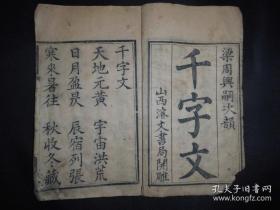 梁周興嗣次韻
千字文
山西濬文書局開雕
千字文
天地元黃 宇宙洪荒
日月盈昃 辰宿列張
寒來暑往 秋收冬藏